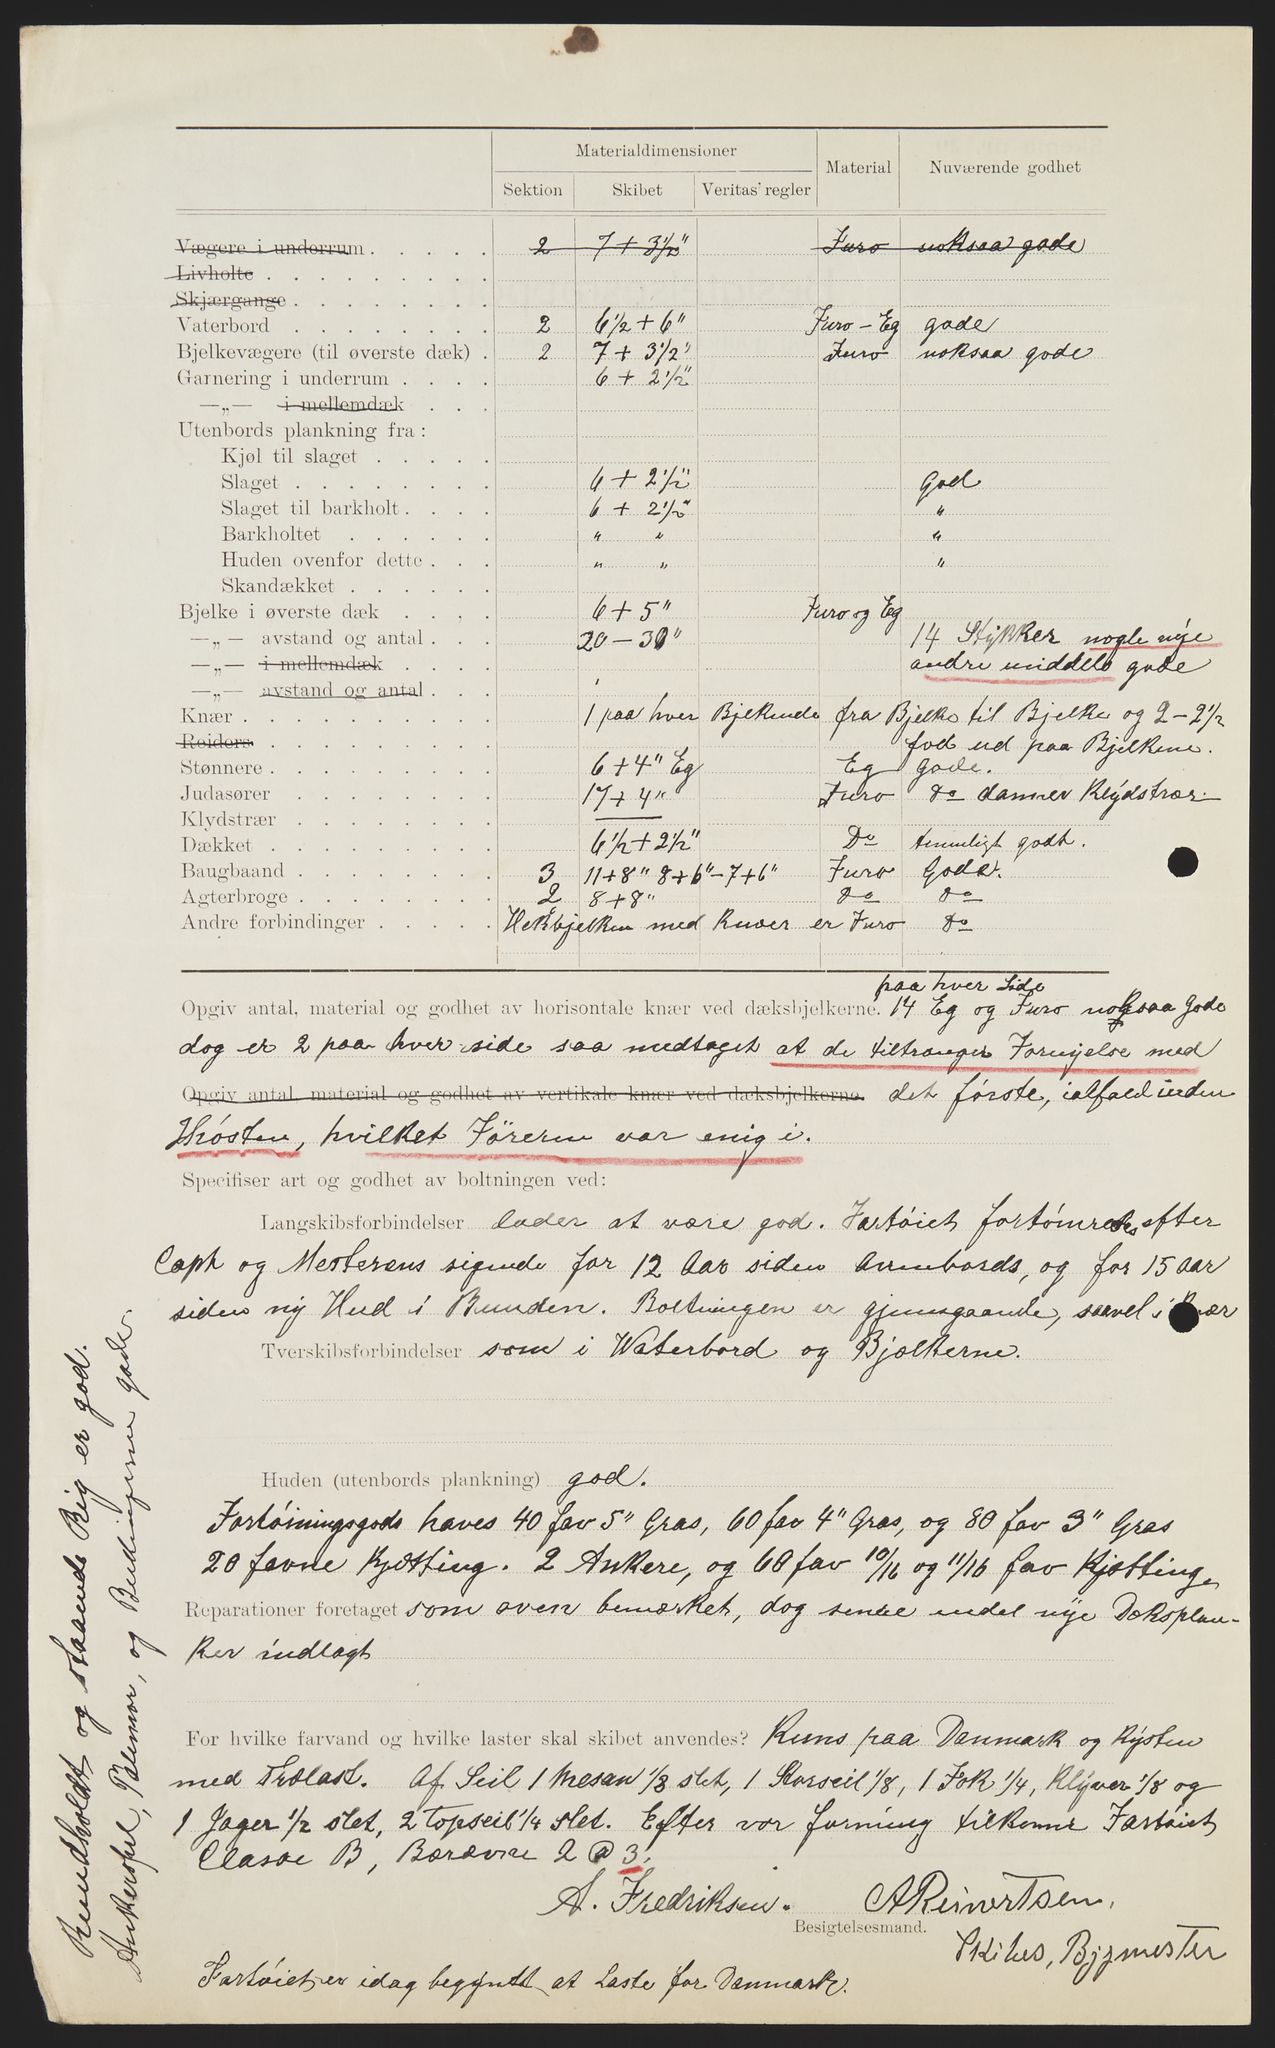 Materialdimensioner Material Nuværende godhet
Sektion Skibet Veritas' regler
Vægere i underrum 2 7 + 3½" Furo noksaa gode
Livholte
Skjærgange
Vaterbord 2 6½ + 6" Furo - Eg gode
Bjelkevægere (til øverste dæk) 2 7 + 3½" Furo noksaa gode
Garnering i underrum 6 + 2½"
—„— i mellemdæk
Utenbords plankning fra:
Kjøl til slaget
Slaget 6 + 2½" God
Slaget til barkholt 6 + 2½" "
Barkholtet " " "
Huden ovenfor dette " " "
Skandækket
Bjelke i øverste dæk 6 + 5" Furo og Eg
—„— avstand og antal 20 - 30" 14 Stykker nogle nye
—„— i mellemdæk andre middels gode
—„— avstand og antal
Knær 1 paa hver Bjelkende fra Bjelke til Bjelke og 2 - 2½
Reiders fod ud paa Bjelkene.
Stønnere 6 + 4" Eg Eg Gode.
Judasører 17 + 4" Furo do danner Klydstrær
Klydstrær
Dækket 6½ + 2½" Do temmeligt godt.
Baugbaand 3 11+8" 8+6" - 7+6" Furo Gode.
Agterbroge 2 8+8" do do
Andre forbindinger Hekbjelken med Knær er Furo do
paa hver Side
Opgiv antal, material og godhet av horisontale knær ved dæksbjelkerne. 14 Eg og Furo noksaa Gode
dog er 2 paa hver side saa medtaget at de tiltrænger Fornyelse med
Opgiv antal material og godhet av vertikale knær ved dæksbjelkerne. det første, ialfald inden
Høsten, hvilket Føreren var enig i.
Specifiser art og godhet av boltningen ved:
Langskibsforbindelser lader at være god. Fartøiet fortømredes efter
Capt og Mesterens sigende for 12 Aar siden ovenbords, og for 15 aar
siden ny Hud i Bunden. Boltningen er gjennegaaende, saavel i Knær
Tverskibsforbindelser som i Waterbord og Bjælkerne.
Huden (utenbords plankning) god.
Fortøiningsgods haves 40 fav 5" Gras, 60 fav 4" Gras, og 80 fav 3" Gras
20 favne Kjætting. 2 Ankere, og 60 fav 10/16 og 11/16 fav Kjætting
Reparationer foretaget som oven bemærket, dog senere endel nye Dæksplan-
ker indlagt
For hvilke farvand og hvilke laster skal skibet anvendes? Kuns paa Danmark og Kysten
med Trælast. Af Seil 1 Mesan 1/8 slet, 1 Storseil 1/8, 1 Fok 1/4, Klyver 1/8 og
1 Jager 1/2 slet, 2 Topseil 1/4 slet. Efter vor formening tilkomme Fartøiet
Classe B, Bæreevne 2 @ 3.
A. Fredriksen. A Reinertsen,
Besigtelsesmand.
Skibs, Bygmester
Fartøiet er idag begyndt at Laste for Danmark.
Rundholdt og staaende Rig er god.
Ankerspil, Palemor, og Bedingerne gode.